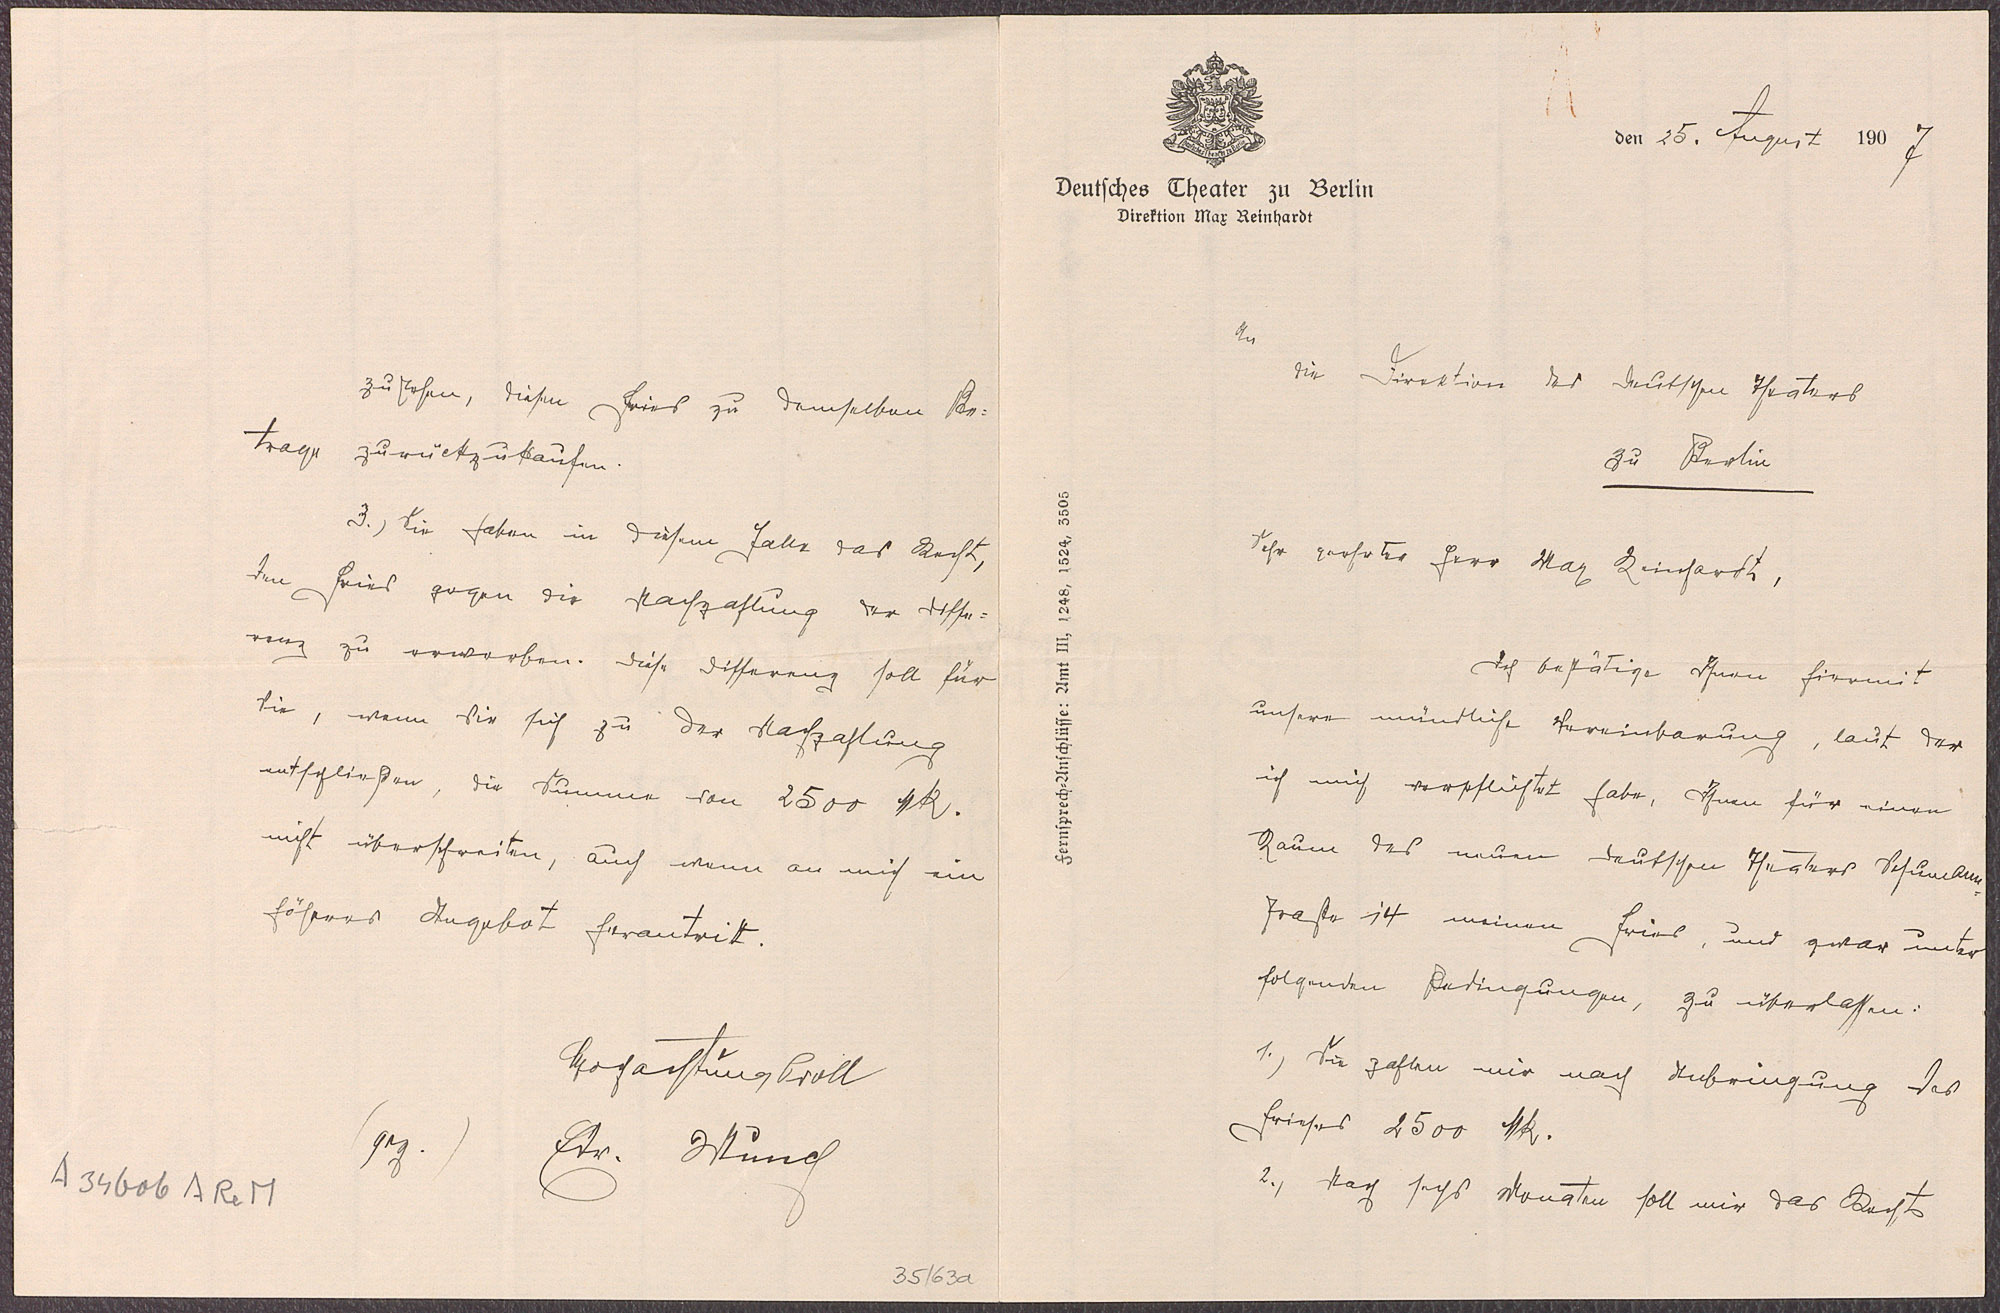 Deutsches Theater zu Berlin
Direktion Max Reinhardt
den 25. August 1907
Fernsprech-Anschlüsse: Amt III, 1248, 1524, 3505
An
die Direktion des Deutschen Theaters
zu Berlin
Sehr geehrter Herr Max Reinhardt,
Ich bestätige Ihnen hiermit
unsere mündliche Vereinbarung, laut der
ich mich verpflichtet habe, Ihnen für einen
Raum des neuen Deutschen Theaters Schumann-
straße 14 meinen Fries, und zwar unter
folgenden Bedingungen, zu überlassen:
1.) Sie zahlen mir nach Anbringung des
Frieses 2500 Mk.
2.) Nach sechs Monaten soll mir das Recht
zustehen, diesen Fries zu demselben Be-
trage zurückzukaufen.
3.) Sie haben in diesem Falle das Recht,
den Fries gegen die Nachzahlung der Diffe-
renz zu erwerben. Diese Differenz soll für
Sie, wenn Sie sich zu der Nachzahlung
entschließen, die Summe von 2500 Mk.
nicht überschreiten, auch wenn an mich ein
höheres Angebot herantritt.
Hochachtungsvoll
(gez.) Edv. Munch
A 34606 A ReM
35/63a